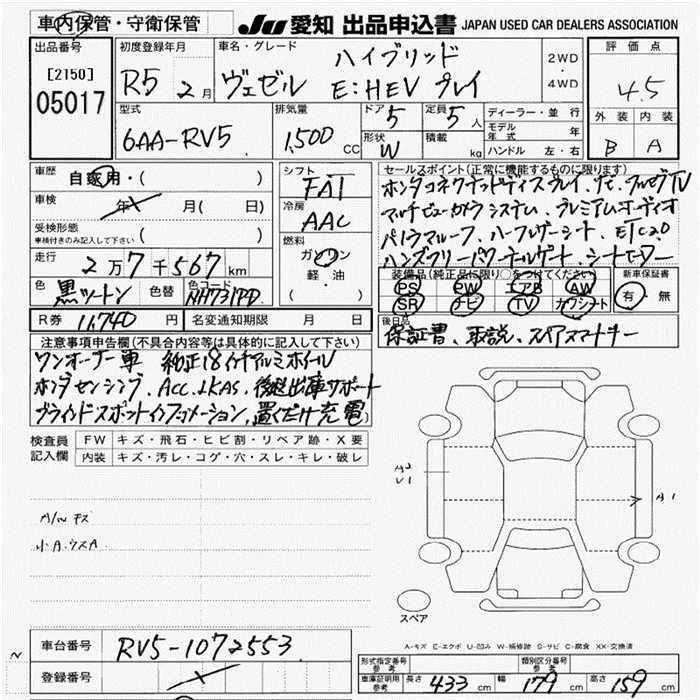 車内保管・守衛保管
JU 愛知 出品申込書 JAPAN USED CAR DEALERS ASSOCIATION
出品番号
[2150]
05017
初度登録年月
R5 2月
車名・グレード
ハイブリッド
ヴェゼル E:HEV プレイ
2WD
・
4WD
評価点
4.5
外装 内装
B A
型式
6AA-RV5
排気量
1,500 CC
ドア 5
定員 5 人
形状 W
積載 kg
ディーラー・並行
モデル年式 年
ハンドル 左・右
車歴
自家用・( )
車検
年 月( 日)
受検形態
車検付きのみ記入して下さい ( )
走行
2万7千567km
色 黒ツートン 色替 色コード NH731PD
シフト
FAT
冷房
AAC
燃料
ガソリン
軽・油
( )
R券 11,740 円 名変通知期限 月 日
セールスポイント(正常に機能するものに限ります)
ホンダコネクテッドディスプレイ、ナビ、フルセグTV
マルチビューカメラシステム、プレミアムオーディオ
パノラマルーフ、ハーフレザーシート、ETC2.0
ハンズフリーパワーテールゲート、シートヒーター
装備品(純正品に限り○をつけてください)
PS PW エアB AW
SR ナビ TV カワシート
新車保証書
有・無
後日品
保証書、取説、スペアスマートキー
注意事項申告欄(不具合内容等は具体的に記入して下さい)
ワンオーナー車 純正18インチアルミホイール
ホンダセンシング、ACC、LKAS、後退出庫サポート
ブラインドスポットインフォメーション、置くだけ充電
検査員記入欄
FW キズ・飛石・ヒビ割・リペア跡・X要
内装 キズ・汚レ・コゲ・穴・スレ・キレ・破レ
A/W キズ
小A.ウスA
A2
U1
A1
スペア
A-キズ E-エクボ U-凹み W-補修跡 S-サビ C-腐食 XX-交換済
車台番号 RV5-1072553
登録番号
型式指定番号 参考
類別区分番号 参考
車庫証明用 参考 長さ 433 cm 幅 179 cm 高さ 159 cm